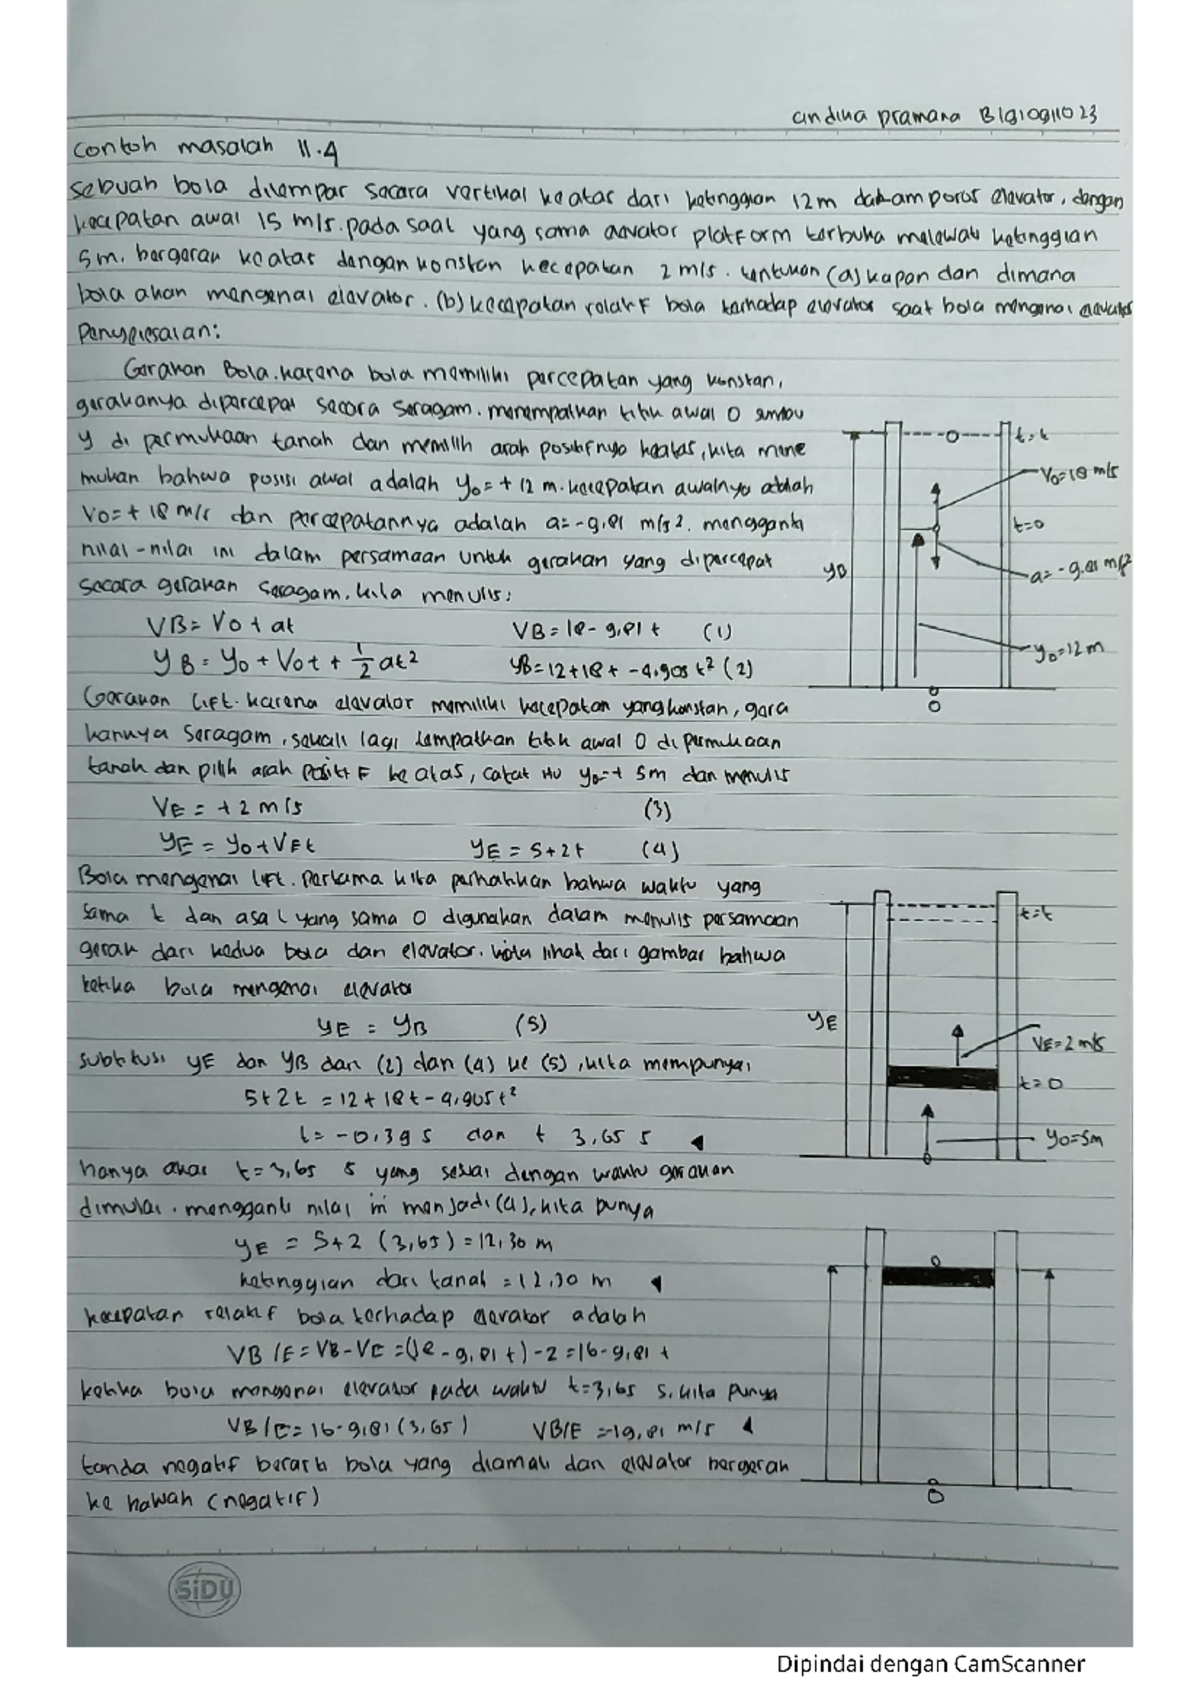 andika pramana B1910911023
contoh masalah 11.4
sebuah bola dilempar secara vertikal keatas dari ketinggian 12m dalam poros elevator, dengan
kecepatan awal 15 m/s. pada saat yang sama elevator platform terbuka melewati ketinggian
5m. bergerak keatas dengan konstan kecepatan 2 m/s. tentukan (a) kapan dan dimana
bola akan mengenai elevator. (b) kecepatan relatif bola terhadap elevator saat bola mengenai elevator
Penyelesaian:
Gerakan Bola. karena bola memiliki percepatan yang konstan,
gerakanya dipercepat secara seragam. menempatkan titik awal O sumbu
y di permukaan tanah dan memilih arah positifnya keatas, kita mene
mukan bahwa posisi awal adalah y₀=+12 m. kecepatan awalnya adalah
V₀=+18 m/s dan percepatannya adalah a=-9,81 m/s². mengganti
nilai-nilai ini dalam persamaan untuk gerakan yang dipercepat
secara gerakan seragam. kita menulis:
VB = V₀ + at VB = 18 - 9,81 t (1)
yB = y₀ + V₀t + ½ at² yB = 12+18t -4.905 t² (2)
t=t
V₀=18 m/s
t=0
a=-9.81 m/s²
y₀
y₀=12m
O
Gerakan lift. karena elevator memiliki kecepatan yang konstan, gera
kannya seragam, sekali lagi tempatkan titik awal O di permukaan
tanah dan pilih arah positif ke atas, catat itu y₀=+5m dan menulis
VE = +2 m/s (3)
yE = y₀+VEt yE = 5+2t (4)
Bola mengenai lift. Pertama kita perhatikan bahwa waktu yang
sama t dan asal yang sama O digunakan dalam menulis persamaan
gerak dari kedua bola dan elevator. kita lihat dari gambar bahwa
ketika bola mengenai elevator
yE = yB (5)
subtitusi yE dan yB dari (2) dan (4) ke (5), kita mempunyai
5+2t = 12+18t-4,905t²
t=-0,39 s dan t 3,65 s
t=t
yE
VE=2 m/s
t=0
y₀=5m
hanya akar t=3,65 s yang sesuai dengan waktu gerakan
dimulai. mengganti nilai ini menjadi (4), kita punya
yE = 5+2 (3,65) = 12,30 m
ketinggian dari tanah = 12,30 m
kecepatan relatif bola terhadap elevator adalah
VB/E = VB-VE = (18-9,81 t)-2 = 16-9,81 t
ketika bola mengenai elevator pada waktu t=3,65 s, kita punya
VB/E = 16-9,81 (3,65) VB/E = -19,81 m/s
tanda negatif berarti bola yang diamati dari elevator bergerak
ke bawah (negatif)
O
SiDU
Dipindai dengan CamScanner